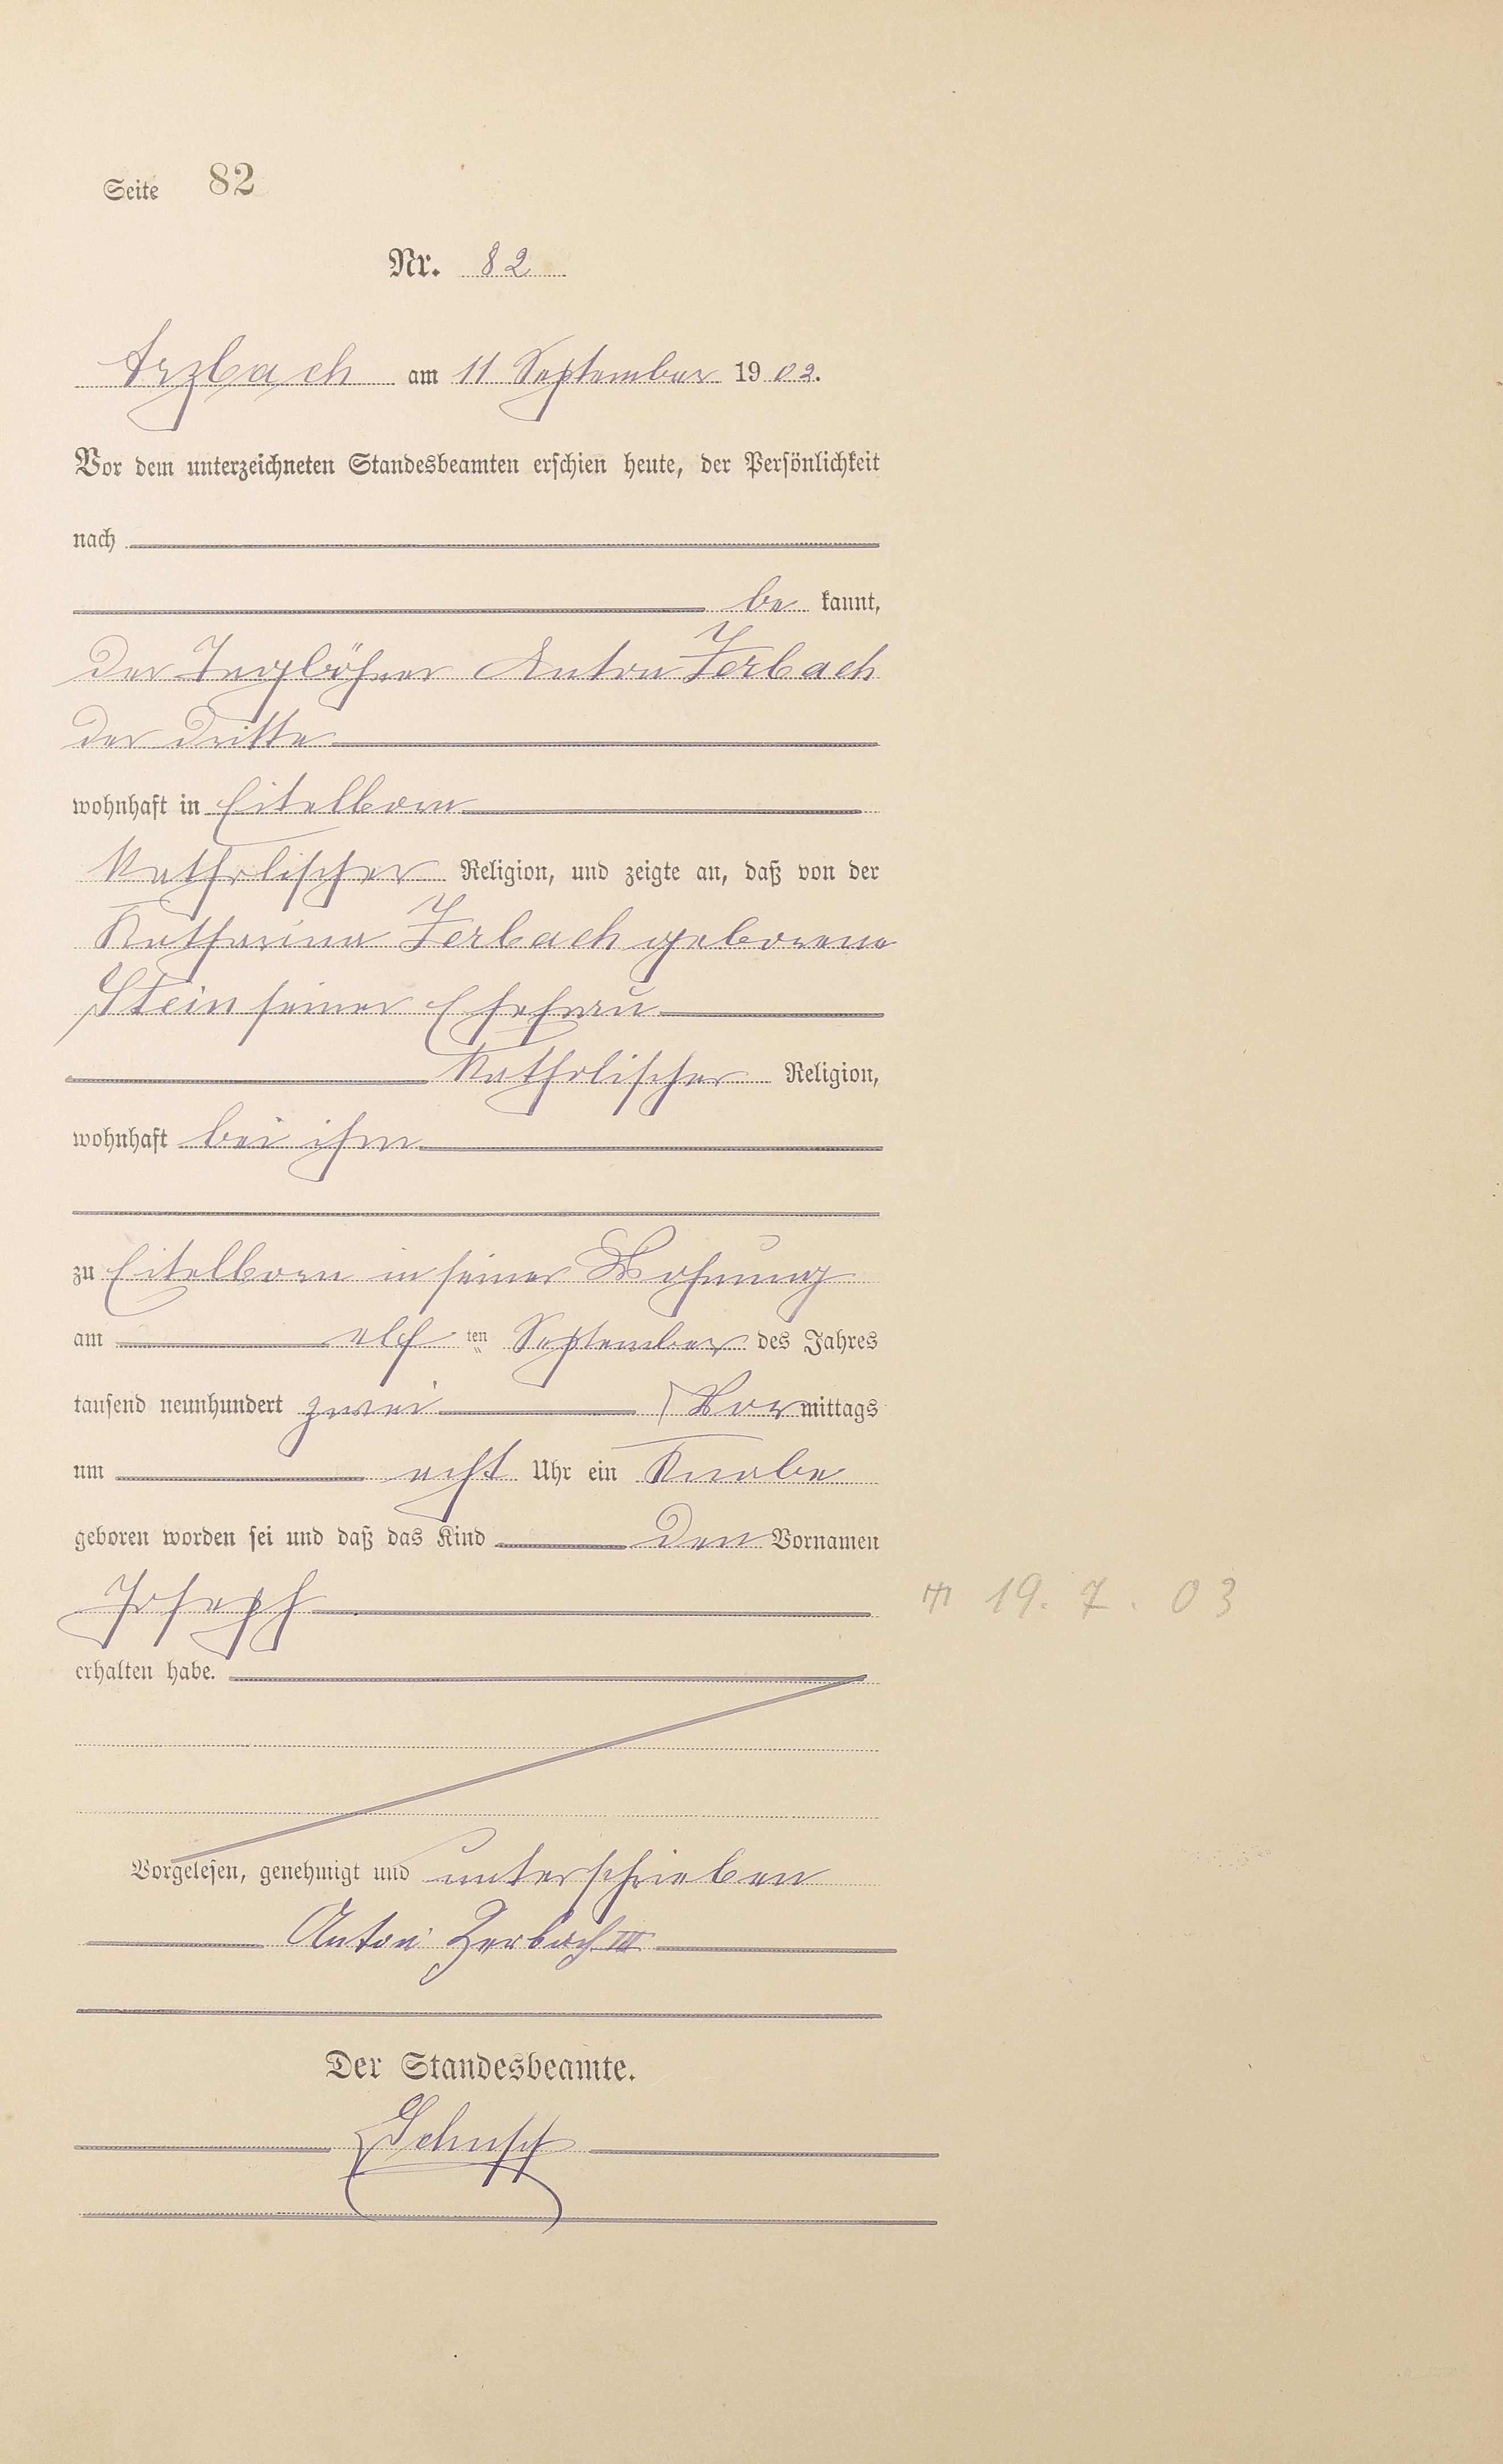 Seite 82
Nr. 82
Arzbach am 11 September 1902.
Vor dem unterzeichneten Standesbeamten erschien heute, der Persönlichkeit
nach
be kannt,
der Taglöhner Anton Zerbach
der Dritte
wohnhaft in Eitelborn
katholischer Religion, und zeigte an, daß von der
Katharina Zerbach geborene
Stein seiner Ehefrau
katholischer Religion,
wohnhaft bei ihm
zu Eitelborn in seiner Wohnung
am elf ten September des Jahres
tausend neunhundert zwei Vormittags
um acht Uhr ein Knabe
geboren worden sei und daß das Kind den Vornamen
Joseph
19. 7. 03
erhalten habe.
Vorgelesen, genehmigt und unterschrieben
Anton Zerbach III
Der Standesbeamte.